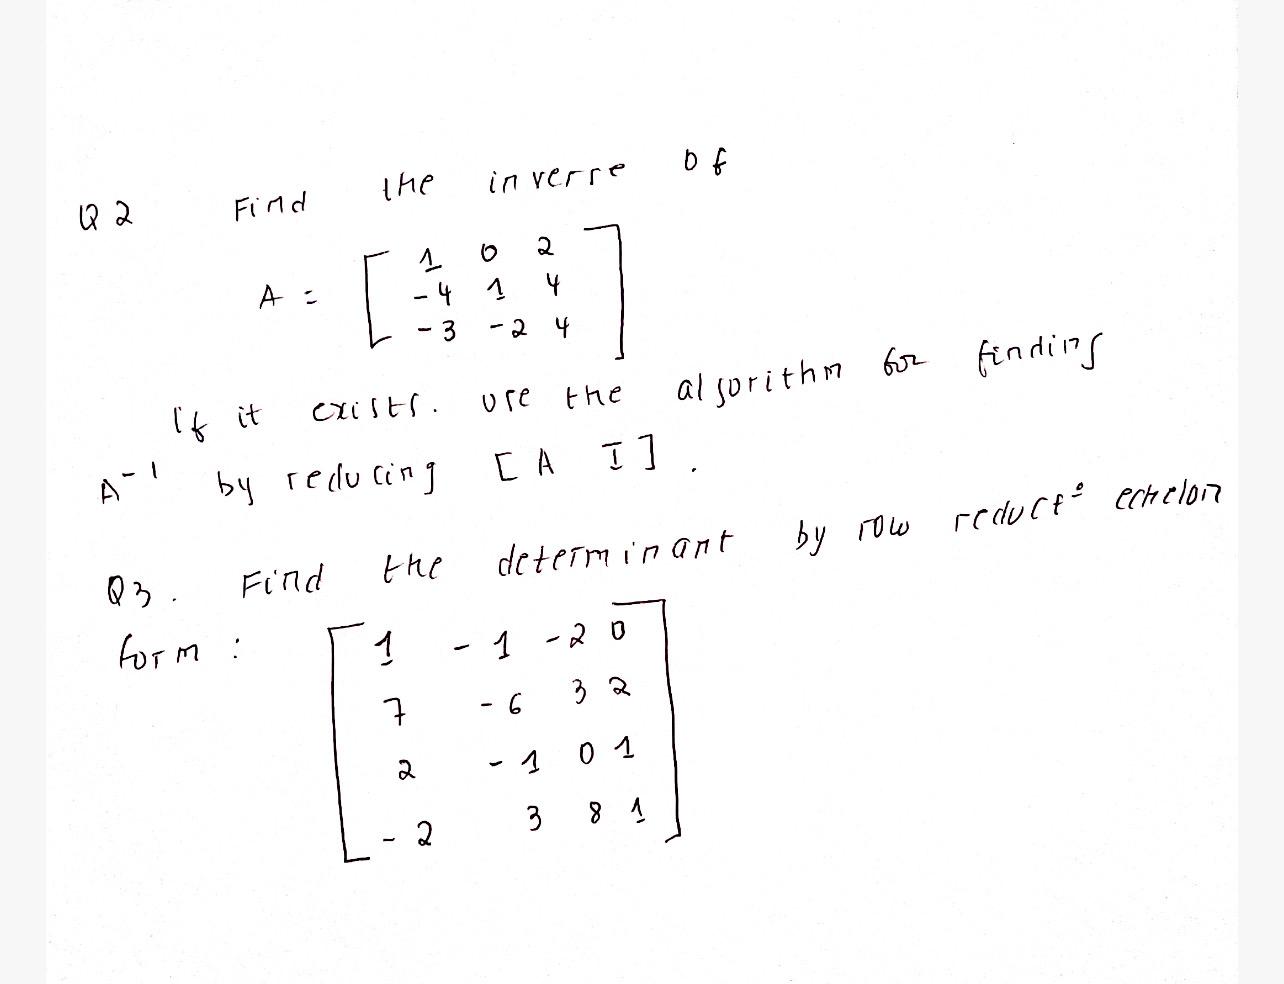 Q2 Find the inverse of
A = [ 1 0 2
-4 1 4
-3 -2 4 ]
if it exists. use the algorithm for finding
A-1 by reducing [A I].
Q3. Find the determinant by row reduct° echelon
form : [ 1 -1 -2 0
7 -6 3 2
2 -1 0 1
-2 3 8 1 ]